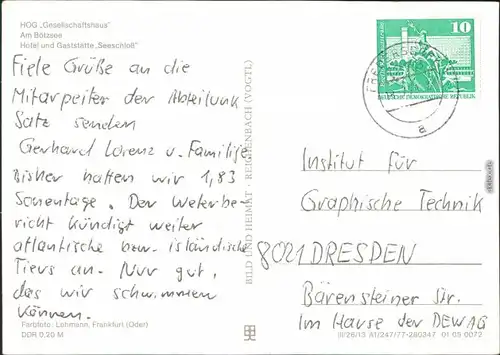 HOG „Gesellschaftshaus"
Am Bötzsee
Hotel und Gaststätte „Seeschloß"
Fiele Grüße an die
Mitarpeiter der Abteilunk
Satz senden
Gerhard Lorenz u. Familije
Bisher hatten wir 1,83
Sonentage. Der Weterbe-
richt kündigt weiter
atlantische bzw. isländische
Tiefs an. Nur gut,
das wir schwimmen
können.
Farbfoto: Lohmann, Frankfurt (Oder)
DDR 0,20 M
BILD UND HEIMAT · REICHENBACH (VOGTL)
10
DEUTSCHE DEMOKRATISCHE REPUBLIK
a
Institut für
Graphische Technik
8021 DRESDEN
Bärensteiner Str.
Im Hause der DEWAG
III/26/13 A1/247/77-280347 01 09 0072